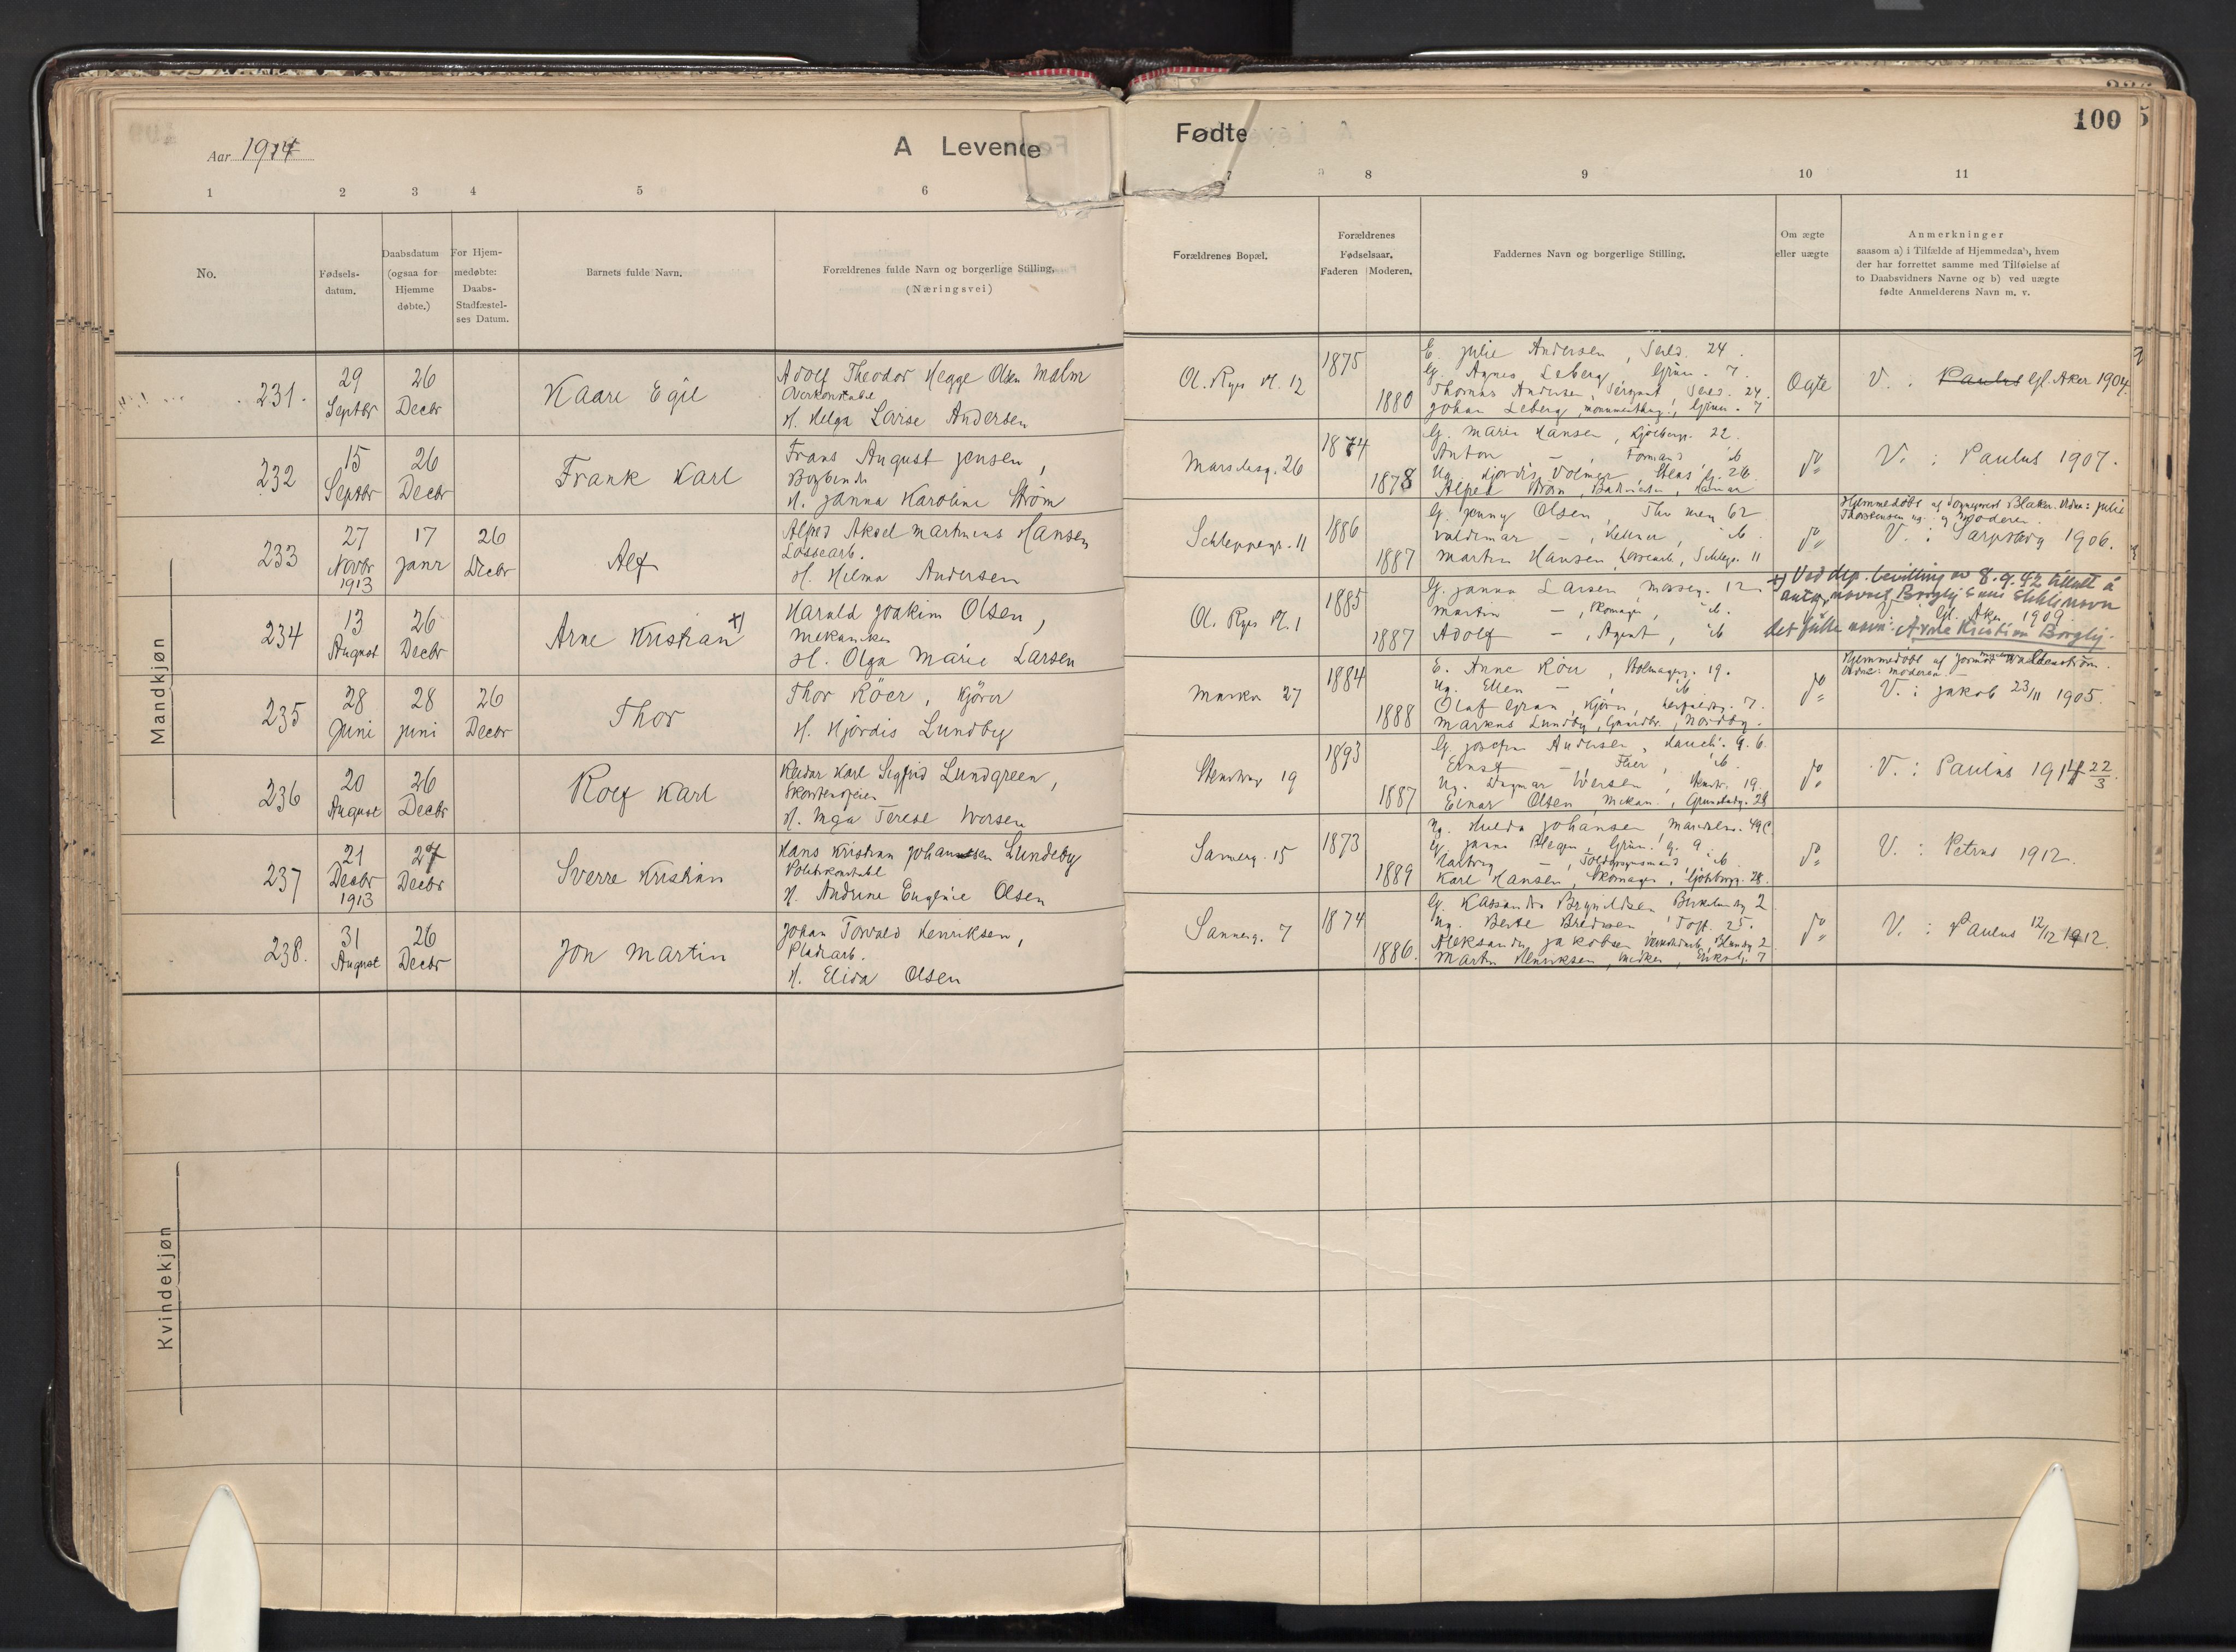 Aar 1914
A Levende
Fødte
100
1 2 3 4 5 6 7 8 9 10 11
No.
Fødsels-
datum.
Daabsdatum
(ogsaa for
Hjemme
døbte.)
For Hjem-
medøbte:
Daabs-
Stadfæstel-
ses Datum.
Barnets fulde Navn.
Forældrenes fulde Navn og borgerlige Stilling,
(Næringsvei)
Forældrenes Bopæl.
Forældrenes
Fødselsaar.
Faderen Moderen.
Faddernes Navn og borgerlige Stilling.
Om ægte
eller uægte
Anmerkninger
saasom a) i Tilfælde af Hjemmedaab, hvem
der har forrettet samme med Tilføielse af
to Daabsvidners Navne og b) ved uægte
fødte Anmelderens Navn m. v.
Mandkjøn
231.
29
Septbr
26
Decbr
Kaare Egil
Adolf Theodor Hegge Olsen Malm
Overkonstabel
H. Helga Lovise Andersen
Ol. Ryes Pl. 12
1875
1880
E. Julie Andersen, 24.
G. Agnes Leberg, Grün. 7.
Thomas Andersen, Sergeant, 24.
Johan Leberg, Grün. 7
Ogte
V. : Paulus Gl. Aker 1904.
232
15
Septbr
26
Decbr
Frank Karl
Frans August Jensen,
Bogbinder
H. Janna Karoline Strøm
Marselisg. 26
1874
1878
G. Marie Hansen, 22.
Anton — , Formand, ib
Ug. Hjørdis Volmer 26.
Alfred Strøm, Hamar
do
V. : Paulus 1907.
233
27
Novbr
1913
17
Janr
26
Decbr
Alf
Alfred Aksel Martinius Hansen
Lossearb.
H. Hilma Andersen
Schleppegr. 11
1886
1887
G. Jenny Olsen, Thv. Mey. 62
Valdemar — , Kellner, ib.
Martin Hansen, Lossearb., Schlepp. 11
do
Hjemmedøbt af Sognepræst Blaker. Vidne: Julie
Thorstensen ug. og Moderen.
V. : Sarpsborg 1906.
234
13
August
26
Decbr
Arne Kristian x)
Harald Joakim Olsen,
Mekaniker
H. Olga Marie Larsen
Ol. Ryes Pl. 1
1885
1887
G. Janna Larsen, 12
Martin — , Skomager, ib.
Adolf — , Agent, ib
x) Ved dep. bevilling av 8.9.42 tillatt å
anta navnet Borgly som slektsnavn
Gl. Aker 1909.
det fulle navn: Arne Kristian Borgly.
235
28
Juni
28
Juni
26
Decbr
Thor
Thor Röer, Kjører
H. Hjördis Lundby
Markv 27
1884
1888
E. Anne Röer, Holmensg. 19.
Ug. Ellen — , ib
Olaf Gran, Kjører, 7.
Markus Lundby, Gaardbr., Nordby.
do
Hjemmedøbt af Jormor Waldenström.
Vidne: Moderen
V. : Jakob 23/11 1905.
236
20
August
26
Decbr
Rolf Karl
Reidar Karl Sigfrid Lundgreen,
Skorstensfeier
H. Inga Terese Iversen
Stenstrg 19
1893
1887
G. Josefine Andersen, 6.
Ernst — , ib.
Ug. Dagmar Iversen, Stenstr. 19.
Einar Olsen, Mekan., 28
do
V. : Paulus 1914 22/3.
237
21
Decbr
1913
27
Decbr
Sverre Kristian
Hans Kristian Johansen Lundeby
Politikonstabel
H. Andrine Eugenie Olsen
Sannerg. 15
1873
1889
Ug. Hulda Johansen, Maridalsv. 49C
G. Janna Blegen, Grün. g. 9
— , ib
Karl Hansen, Skomager, 28.
do
V. : Petrus 1912.
238.
31
August
26
Decbr
Jon Martin
Johan Torvald Henriksen,
Pladsarb.
H. Elida Olsen
Sannerg. 7
1874
1886.
G. Kassandra Brynildsen 2
Ug. Berte Bredesen, Toft. 25.
Aleksander Jakobsen 2.
Martin Henriksen, 7
do
V. : Paulus 12/12 1912.
Kvindekjøn